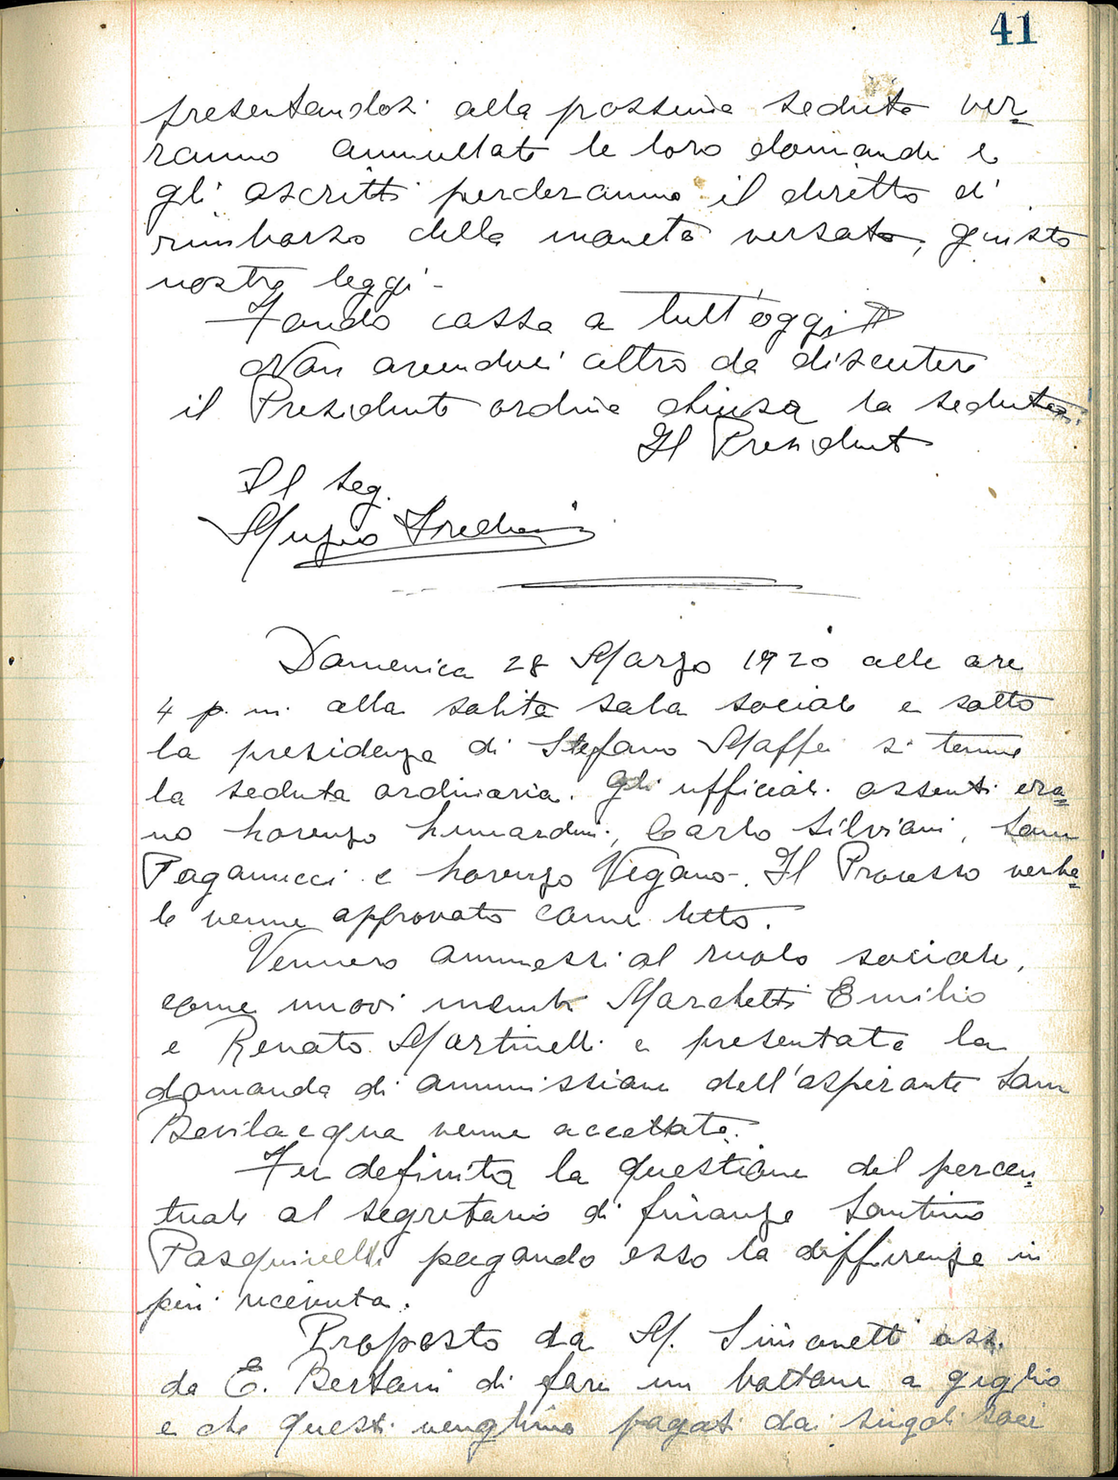 41
presentandosi alla prossima seduta ver=
ranno annullate le loro domande e
gli ascritti perderanno il diretto di
rimborso della moneta versata, giusto
nostre leggi -
Fondo cassa a tutt'oggi
Non avendovi altro da discutere
il Presidente ordina chiusa la seduta.
Il President
Il Seg.
Domenica 28 Marzo 1920 alle ore
4 p. m. alla solita sala sociale e sotto
la presidenza di Stefano Maffei si tenne
la seduta ordinaria. Gli ufficiali assenti era=
no Lorenzo Lunardini, Carlo Silviani, Sam
Pagannucci e Lorenzo Vegano. Il Processo verba=
le venne approvato come letto.
Vennero ammessi al ruolo sociale,
come nuovi membri Marchetti Emilio
e Renato Martinelli e presentata la
domanda di ammissione dell'aspirante Sam
Bevilacqua venne accettata.
Fu definita la questione del percen=
tuale al segretario di finanze Santino
Pasquinelli pagando esso la differenza in
più ricevuta.
Proposto da M. Simonetti ass.
da E. Bertani di fare un bottone a giglio
e che questi venghino pagati dai singoli soci